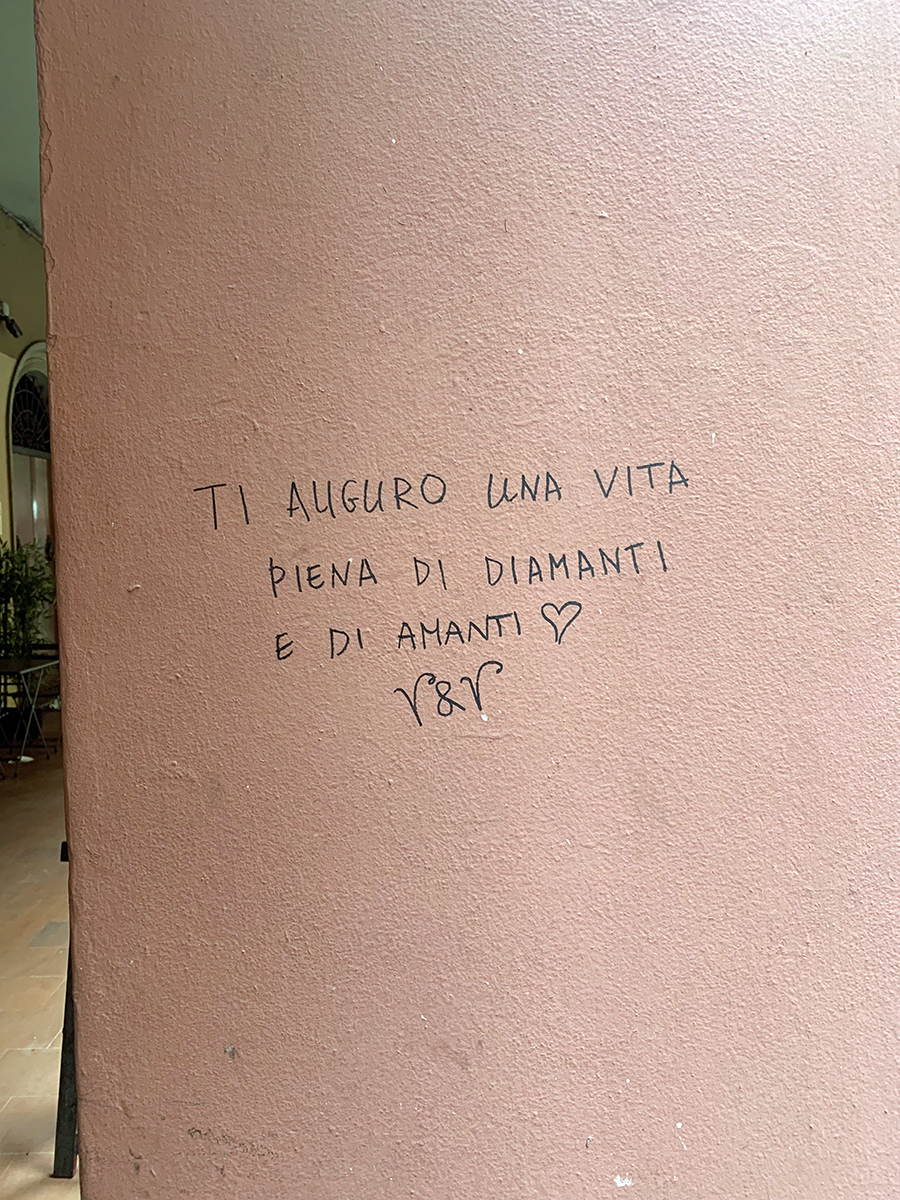 TI AUGURO UNA VITA
PIENA DI DIAMANTI
E DI AMANTI ♡
V&V